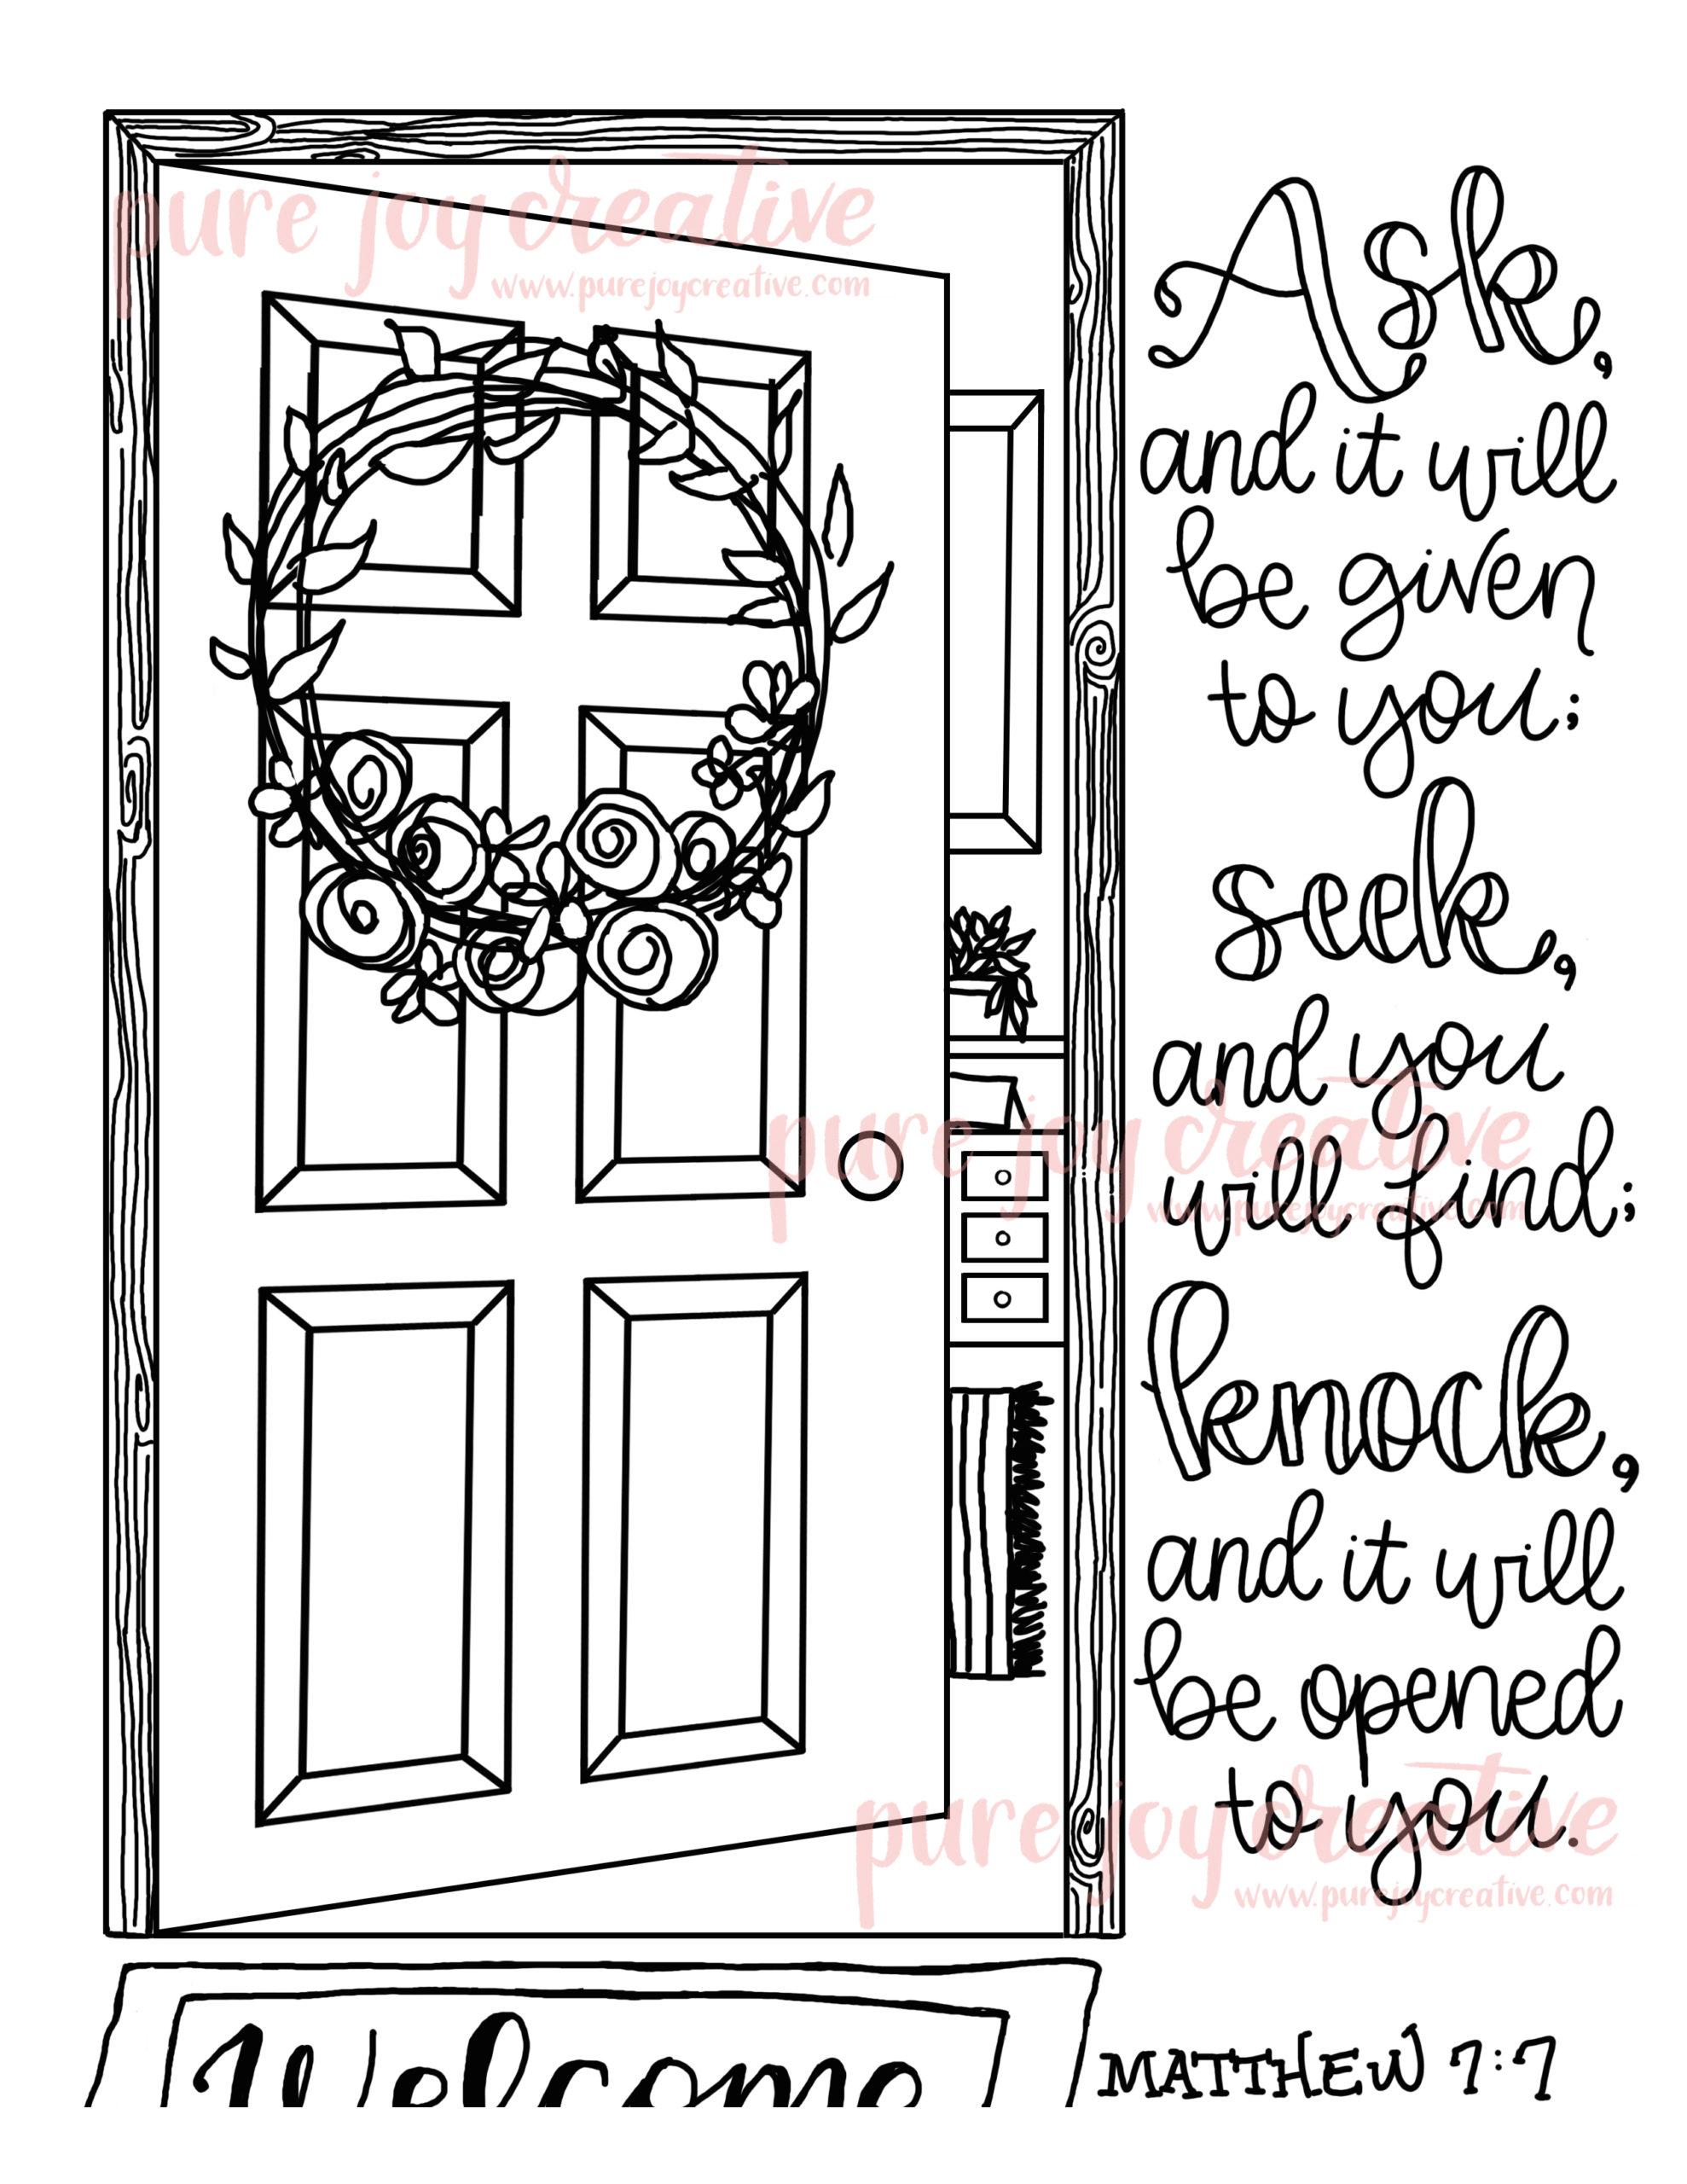 pure joy creative
www.purejoycreative.com
Ask,
and it will
be given
to you;
seek,
and you
will find;
pure joy creative
www.purejoycreative.com
knock,
and it will
be opened
to you.
pure joy creative
www.purejoycreative.com
Welcome
MATTHEW 7:7